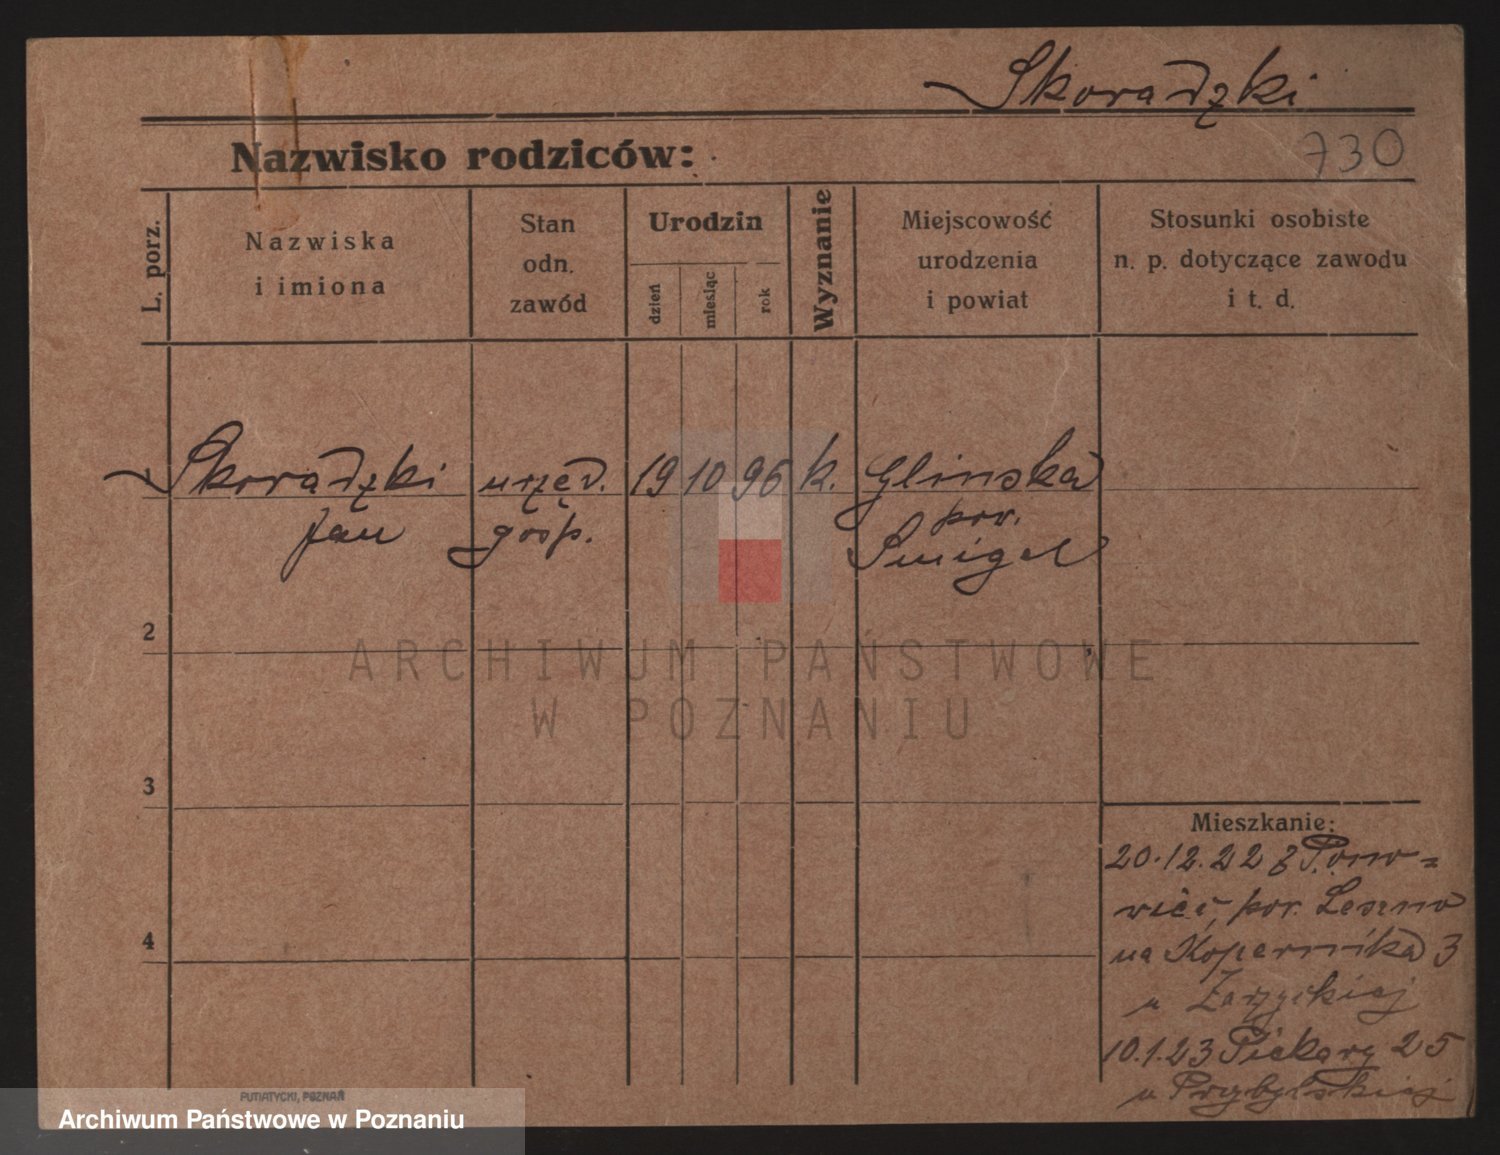 Skoradzki
Nazwisko rodziców:
730
L. porz.
Nazwiska
i imiona
Stan
odn.
zawód
Urodzin
dzień
miesiąc
rok
Wyznanie
Miejscowość
urodzenia
i powiat
Stosunki osobiste
n. p. dotyczące zawodu
i t. d.
Skoradzki urzęd. 19 10 96 k. Glinska
Jan gosp. pow.
Smigel
2
ARCHIWUM PAŃSTWOWE
W POZNANIU
3
Mieszkanie:
20.12.22 z
pow. Leszno
na Kopernika 3
u Zarzyckiej
10.1.23 Piekary 25
u Przybylskiej
4
PUTIATYCKI, POZNAŃ
Archiwum Państwowe w Poznaniu